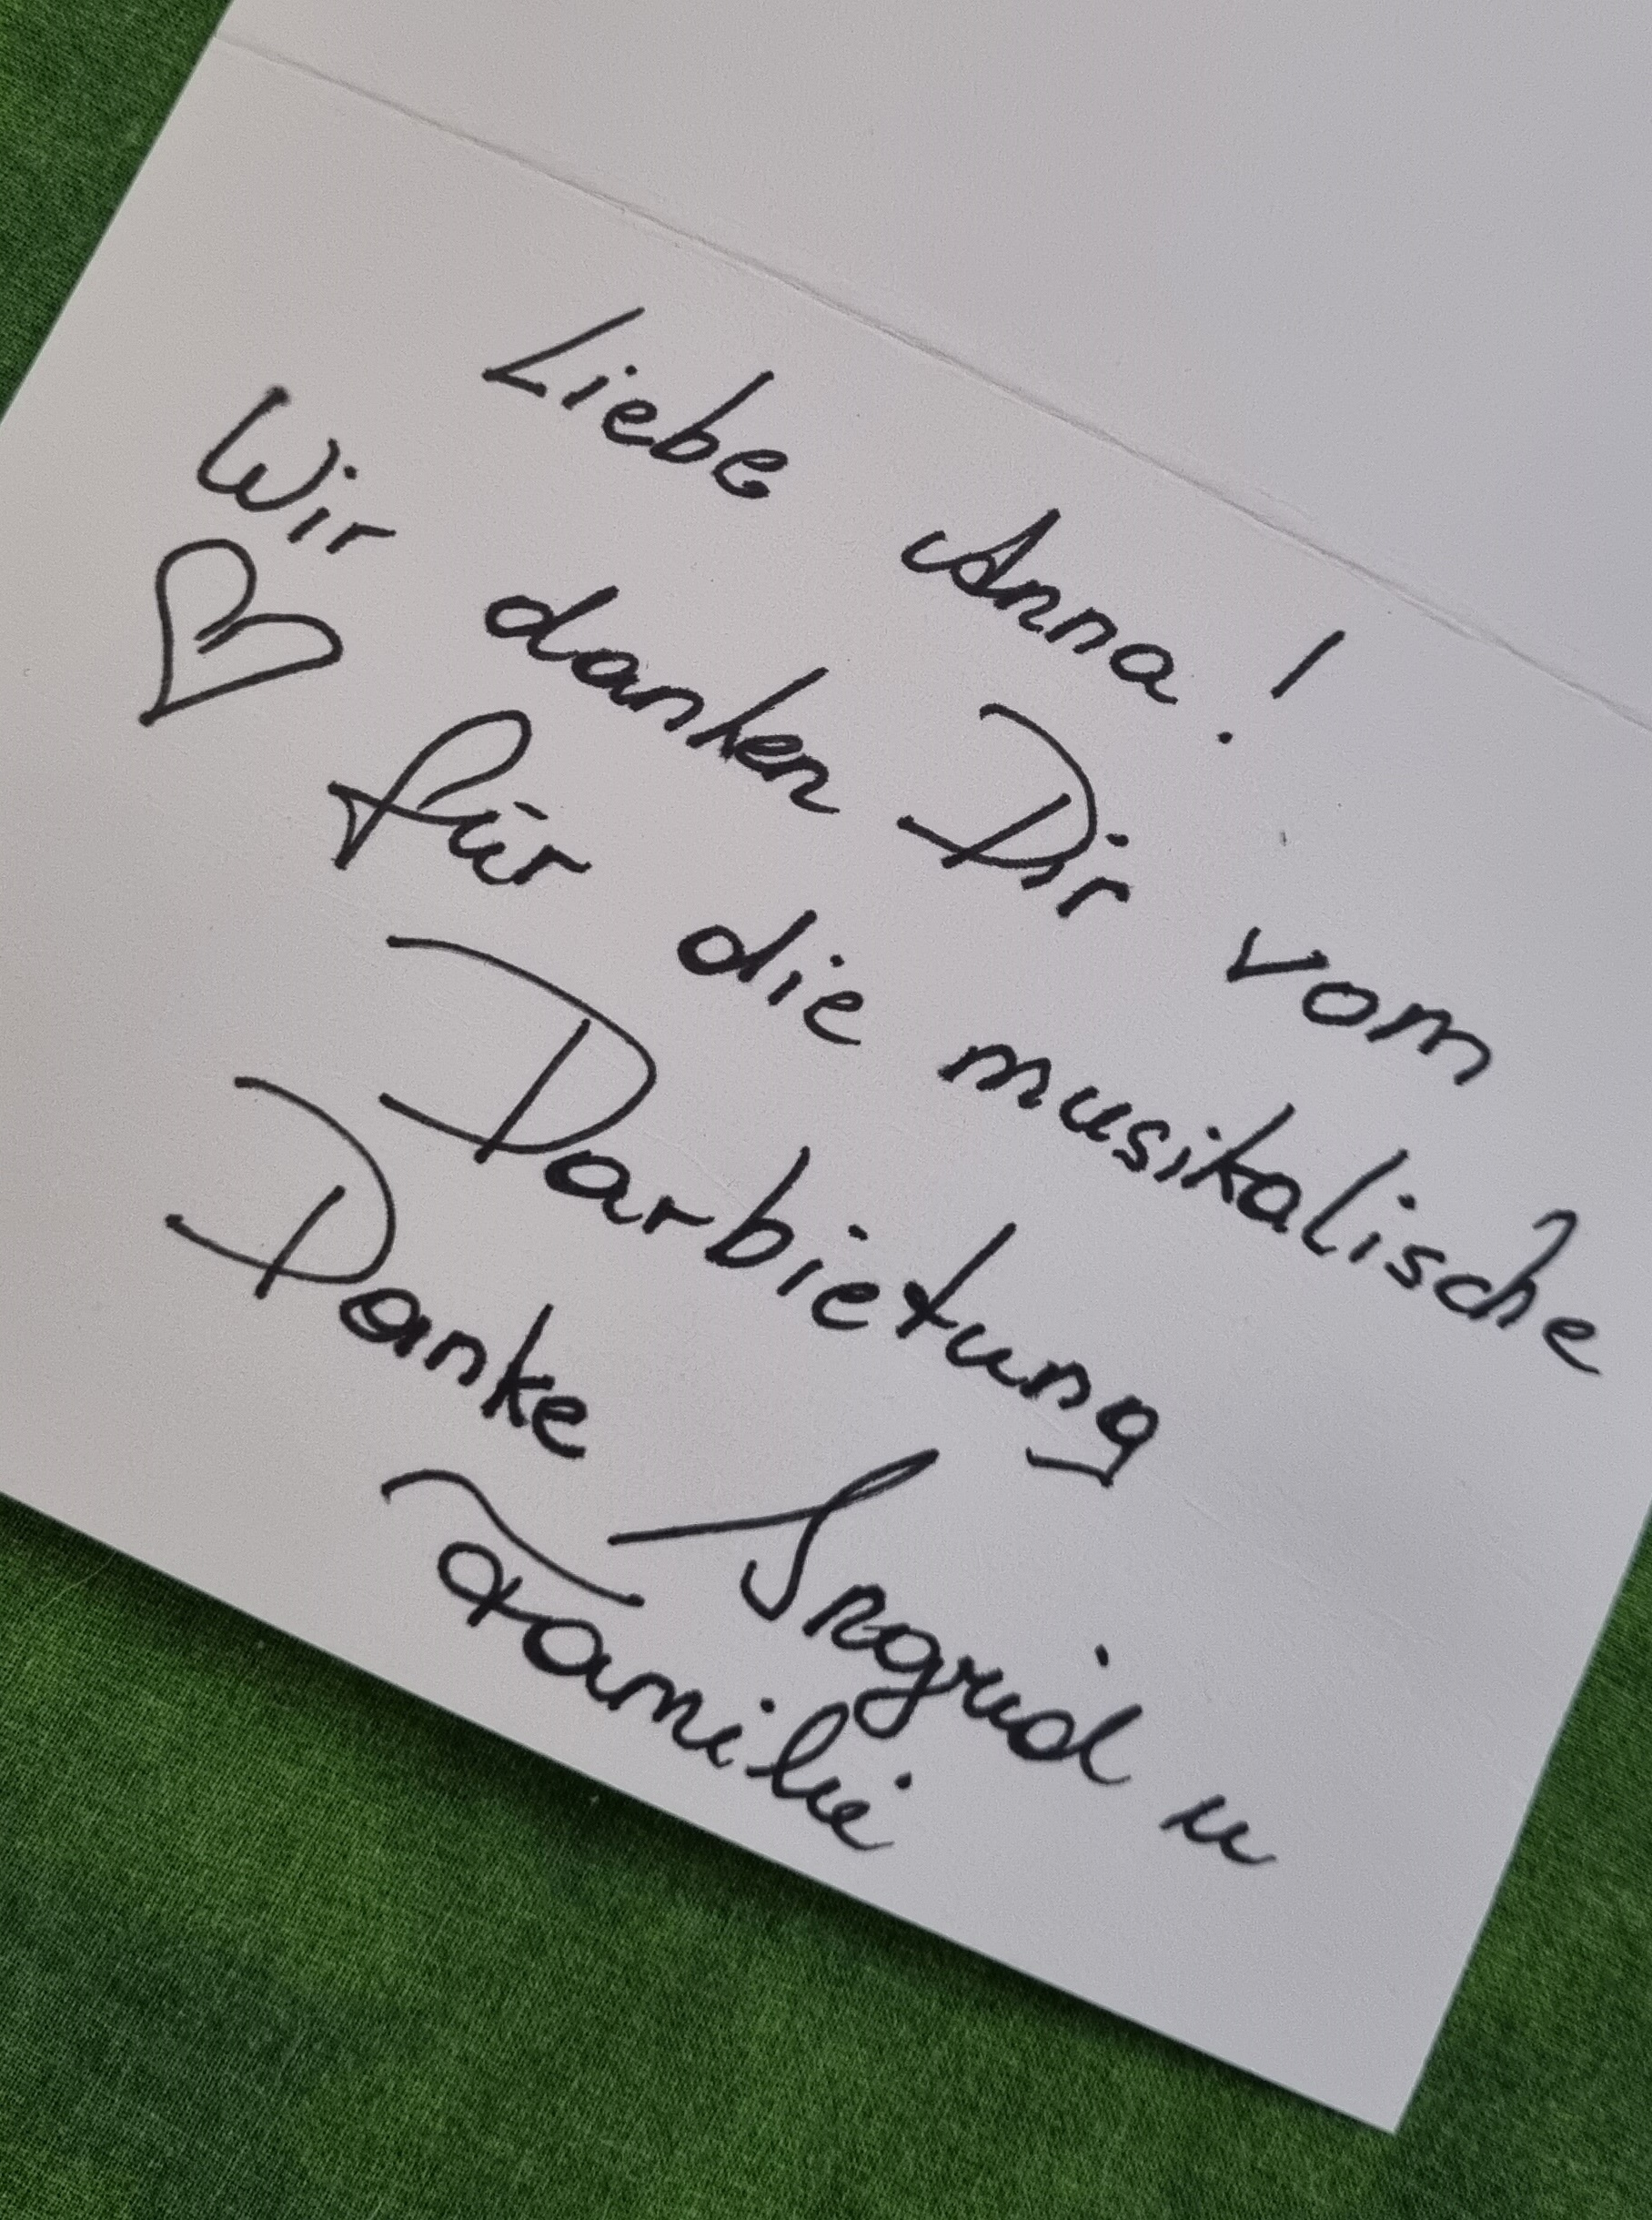 Liebe Anna!
Wir danken Dir vom
♡ für die musikalische
Darbietung
Danke Ingrid u
Familie